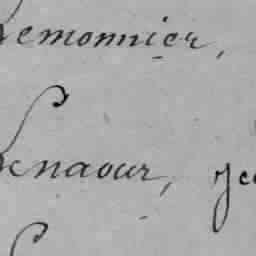 Lemonnier,
Lenaour, Je